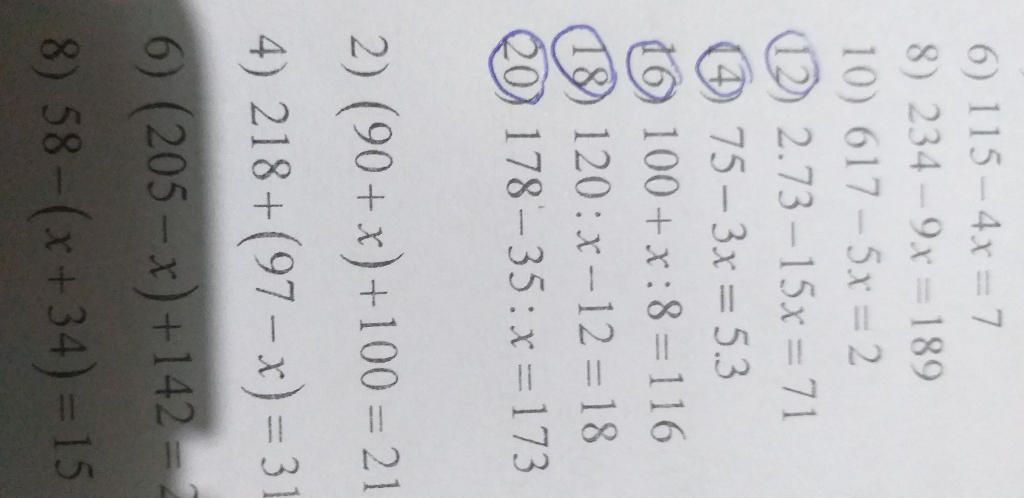 6) 115 − 4x = 7
8) 234 − 9x = 189
10) 617 − 5x = 2
12) 2.73 − 15x = 71
14) 75 − 3x = 5.3
16) 100 + x : 8 = 116
18) 120 : x − 12 = 18
20) 178 − 35 : x = 173
2) (90 + x) + 100 = 21
4) 218 + (97 − x) = 31
6) (205 − x) + 142 = 2
8) 58 − (x + 34) = 15